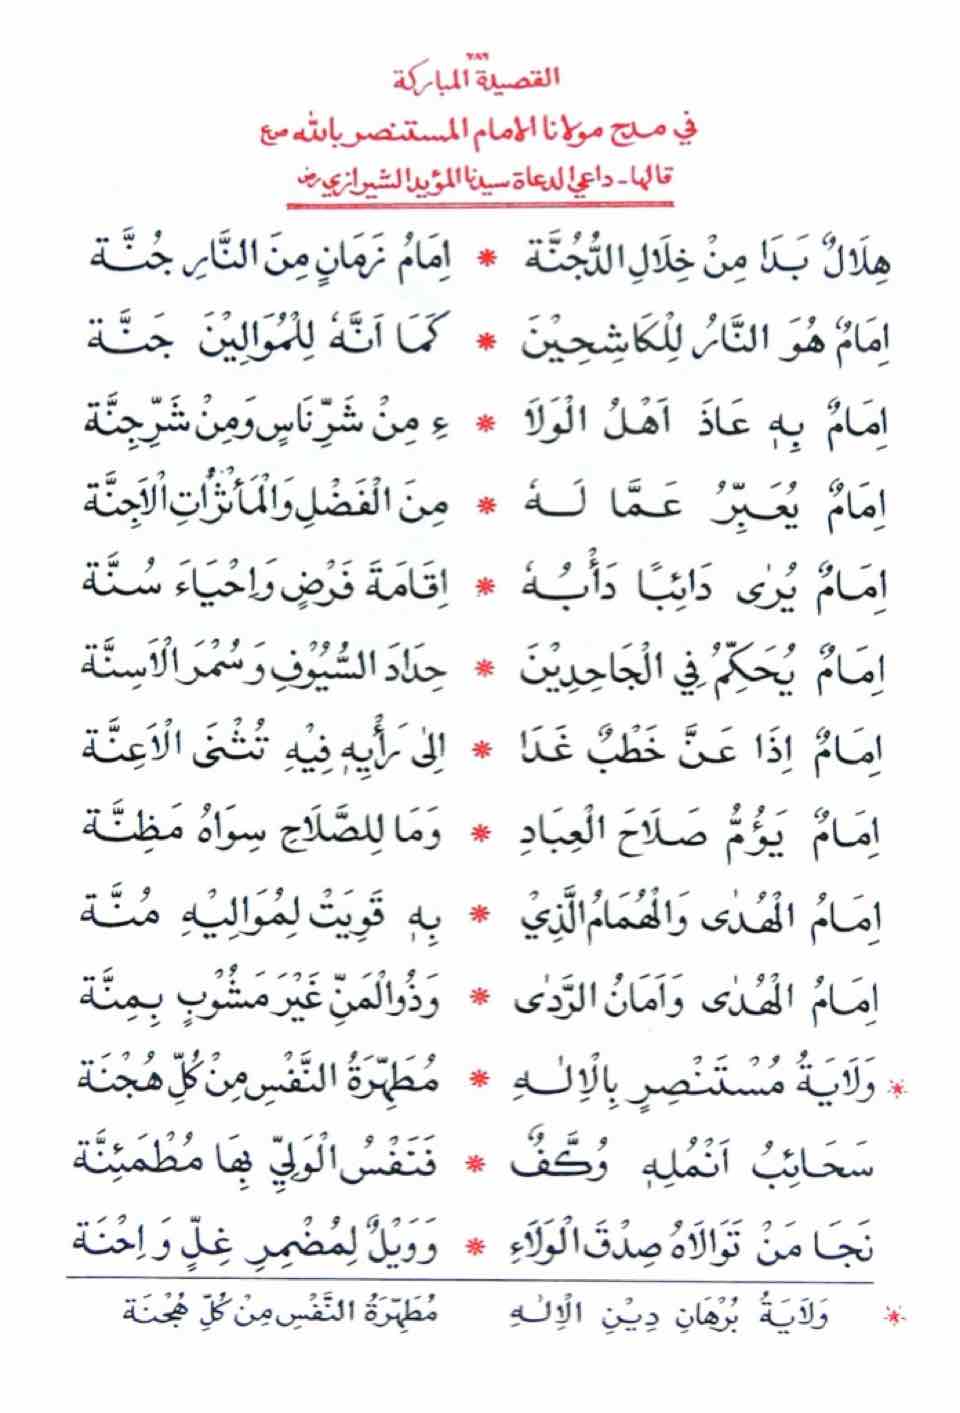 ٧٨٦
القصيدة المباركة
في مدح مولانا الامام المستنصر بالله صع
قالها - داعي الدعاة سيدنا المؤيد الشيرازي رض
هِلَالٌ بَدَا مِنْ خِلَالِ الدُّجُنَّة * اِمَامُ زَمَانٍ مِنَ النَّارِ جُنَّة
اِمَامٌ هُوَ النَّارُ لِلْكَاشِحِيْنَ * كَمَا اَنَّهٗ لِلْمُوَالِيْنَ جَنَّة
اِمَامٌ بِهٖ عَاذَ اَهْلُ الْوَلَا * ءِ مِنْ شَرِّ نَاسٍ وَمِنْ شَرِّ جِنَّة
اِمَامٌ يُعَبِّرُ عَمَّا لَهٗ * مِنَ الْفَضْلِ وَالْمَأْثُرَاتِ الْاَجِنَّة
اِمَامٌ يُرٰى دَائِبًا دَأْبُهٗ * اِقَامَةَ فَرْضٍ وَاِحْيَاءَ سُنَّة
اِمَامٌ يُحَكِّمُ فِي الْجَاحِدِيْنَ * حِدَادَ السُّيُوْفِ وَسُمْرَ الْاَسِنَّة
اِمَامٌ اِذَا عَنَّ خَطْبٌ غَدَا * اِلٰى رَأْيِهٖ فِيْهِ تُثْنَى الْاَعِنَّة
اِمَامٌ يَؤُمُّ صَلَاحَ الْعِبَادِ * وَمَا لِلصَّلَاحِ سِوَاهُ مَظِنَّة
اِمَامُ الْهُدٰى وَالْهُمَامُ الَّذِيْ * بِهٖ قَوِيَتْ لِمُوَالِيْهِ مُنَّة
اِمَامُ الْهُدٰى وَاَمَانُ الرَّدٰى * وَذُو الْمَنِّ غَيْرَ مَشُوْبٍ بِمِنَّة
* وَلَايَةُ مُسْتَنْصِرٍ بِالْاِلٰهِ * مُطَهِّرَةُ النَّفْسِ مِنْ كُلِّ هُجْنَة
سَحَائِبُ اَنْمُلِهٖ وُكَّفٌ * فَنَفْسُ الْوَلِيِّ بِهَا مُطْمَئِنَّة
نَجَا مَنْ تَوَالَاهُ صِدْقَ الْوَلَاءِ * وَوَيْلٌ لِمُضْمِرِ غِلٍّ وَاِحْنَة
* وَلَايَةُ بُرْهَانِ دِيْنِ الْاِلٰهِ مُطَهِّرَةُ النَّفْسِ مِنْ كُلِّ هُجْنَة